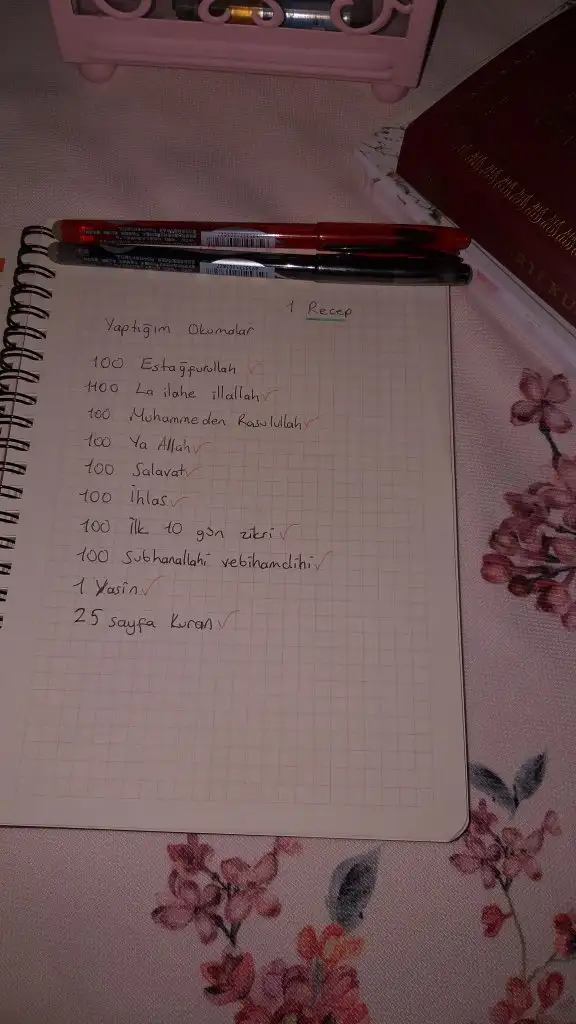 1 Recep
Yaptığım Okumalar
100 Estağfurullah ✓
1100 La ilahe illallah ✓
100 Muhammeden Rasulullah ✓
100 Ya Allah ✓
100 Salavat ✓
100 İhlas ✓
100 İlk 10 gün zikri ✓
100 Subhanallahi vebihamdihi ✓
1 Yasin ✓
25 sayfa Kuran ✓